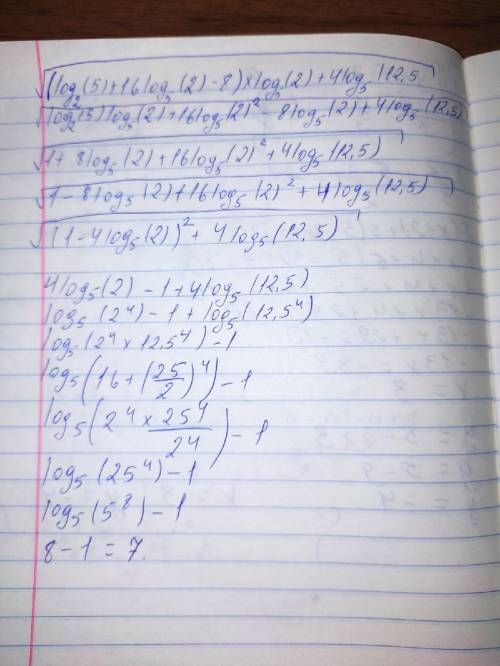 √(log₂(5)+16log₅(2)-8)×log₅(2)+4log₅(12,5
√log₂(5)log₅(2)+16log₅(2)²-8log₅(2)+4log₅(12,5)
√1+8log₅(2)+16log₅(2)²+4log₅(12,5)
√1-8log₅(2)+16log₅(2)²+4log₅(12,5)
√(1-4log₅(2))²+4log₅(12,5)
4log₅(2)-1+4log₅(12,5)
log₅(2⁴)-1+log₅(12,5⁴)
log₅(2⁴×12,5⁴)-1
log₅(16+(25/2)⁴)-1
log₅(2⁴×25⁴/24)-1
log₅(25⁴)-1
log₅(5⁸)-1
8-1=7.